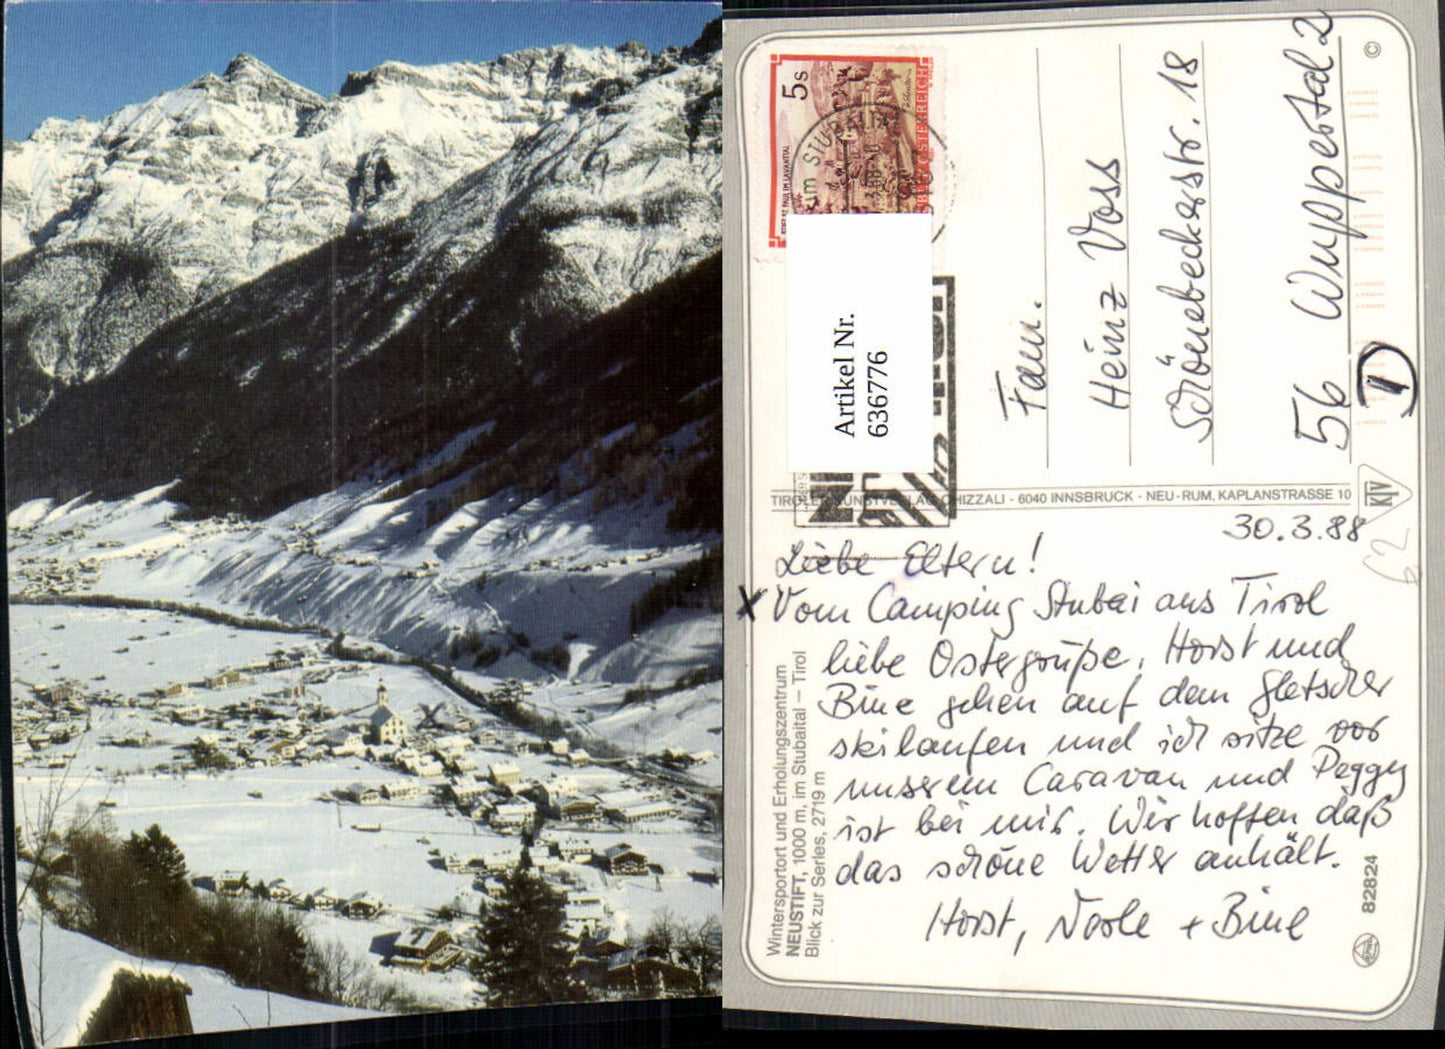 5 S
STIFT ST. PAUL IM LAVANTTAL
REPUBLIK ÖSTERREICH
IM STUBAITAL
Artikel Nr.
636776
Fam.
Heinz Voss
Schönebeckerstr. 18
56 Wuppertal 2
1
©
TIROLER KUNSTVERLAG CHIZZALI · 6040 INNSBRUCK · NEU-RUM, KAPLANSTRASSE 10
KTV
62
30.3.88
Liebe Eltern!
X Vom Camping Stubai aus Tirol
liebe Ostergrüße. Horst und
Bine gehen auf dem Gletscher
skilaufen und ich sitze vor
unserem Caravan und Peggy
ist bei mir. Wir hoffen daß
das schöne Wetter anhält.
Horst, + Bine
Wintersportort und Erholungszentrum
NEUSTIFT, 1000 m, im Stubaital – Tirol
Blick zur Serles, 2719 m
82824